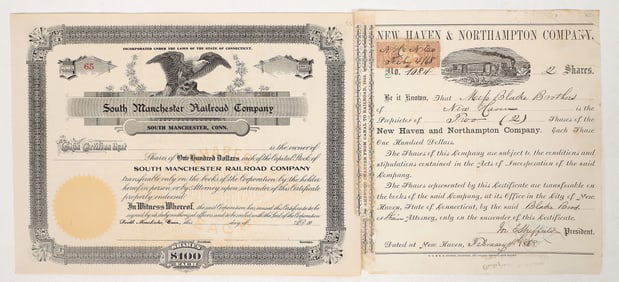 INCORPORATED UNDER THE LAWS OF THE STATE OF CONNECTICUT.
65
South Manchester Railroad Company
SOUTH MANCHESTER, CONN.
This Certifies that is the owner of
Shares of One Hundred Dollars each of the Capital Stock of
SOUTH MANCHESTER RAILROAD COMPANY
transferable only on the books of the Corporation by the holder
hereof in person or by Attorney upon surrender of this Certificate
properly endorsed.
In Witness Whereof, the said Corporation has caused this Certificate to be
signed by its duly authorized officers and to be sealed with the Seal of the Corporation
South Manchester, Conn. this day of A.D. 19
SHARES
$100
EACH
NEW HAVEN & NORTHAMPTON COMPANY.
No. 1984 2 Shares.
Be it Known, That Mess Blake Brothers
of New Haven is the
Proprietor of Two (2) Shares of the
New Haven and Northampton Company. Each Share
One Hundred Dollars.
The Shares of this Company are subject to the conditions and
stipulations contained in the Acts of Incorporation of the said
Company.
The Shares represented by this Certificate are transferable on
the books of the said Company, at its Office in the City of New
Haven, State of Connecticut, by the said Blake Bros
or their Attorney, only on the surrender of this Certificate.
President.
Dated at New Haven, February 1868